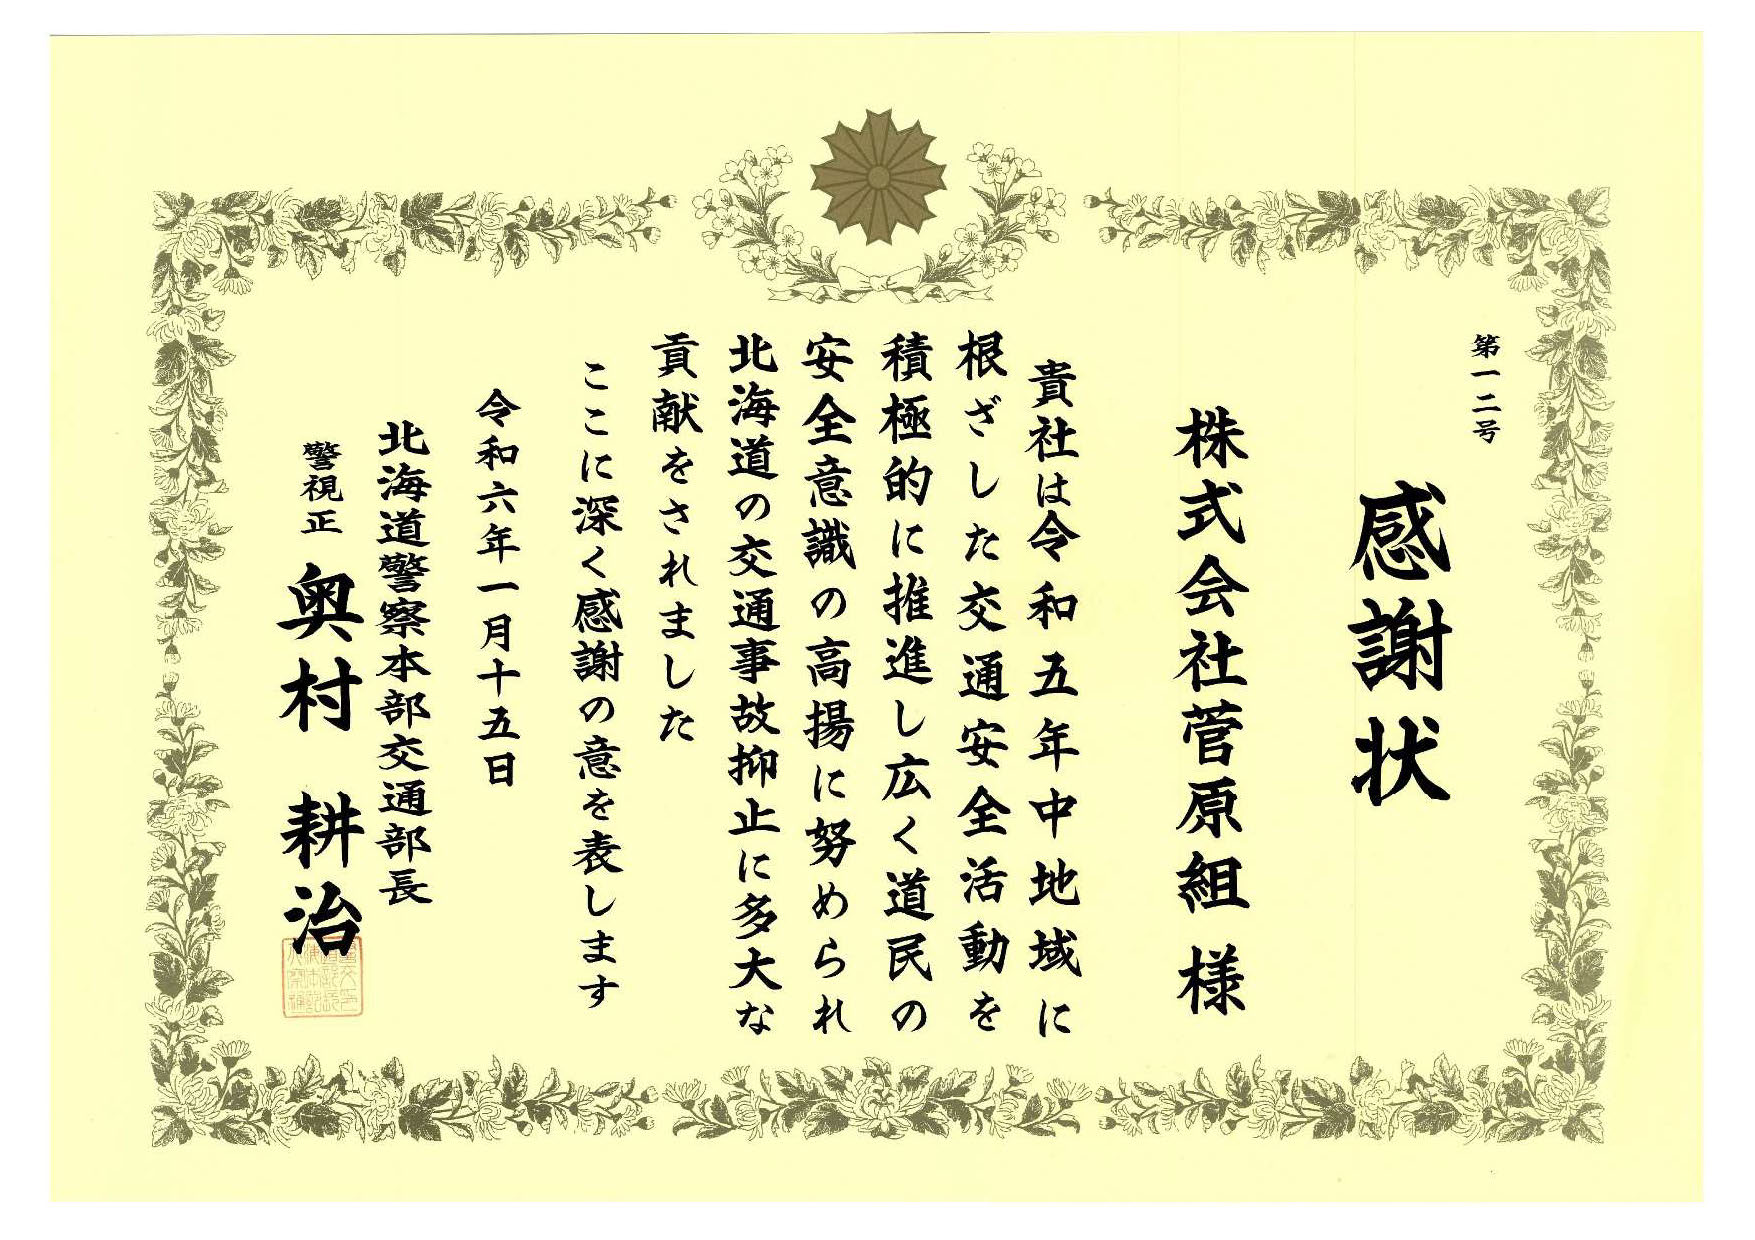 第一二号
感謝状
株式会社菅原組 様
貴社は令和五年中地域に
根ざした交通安全活動を
積極的に推進し広く道民の
安全意識の高揚に努められ
北海道の交通事故抑止に多大な
貢献をされました
ここに深く感謝の意を表します
令和六年一月十五日
北海道警察本部交通部長
警視正 奥村 耕治